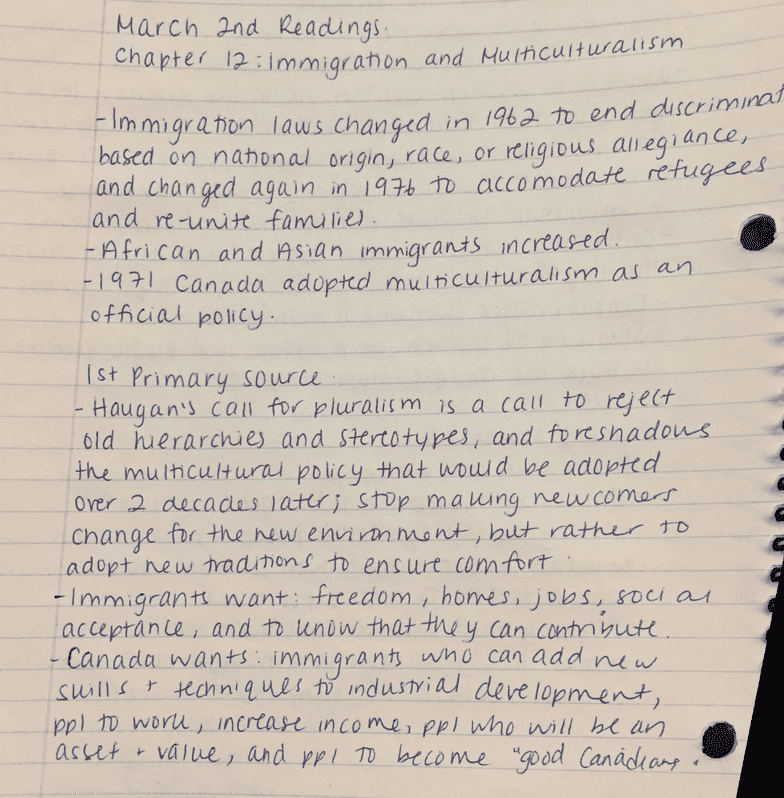 March 2nd Readings.
Chapter 12: Immigration and Multiculturalism
- Immigration laws changed in 1962 to end discriminat
based on national origin, race, or religious allegiance,
and changed again in 1976 to accomodate refugees
and re-unite families.
- African and Asian immigrants increased.
- 1971 Canada adopted multiculturalism as an
official policy.
1st Primary source.
- Haugan's call for pluralism is a call to reject
old hierarchies and stereotypes, and foreshadows
the multicultural policy that would be adopted
over 2 decades later; stop making newcomers
change for the new environment, but rather to
adopt new traditions to ensure comfort.
- Immigrants want: freedom, homes, jobs, social
acceptance, and to know that they can contribute.
- Canada wants: immigrants who can add new
skills + techniques to industrial development,
ppl to work, increase income, ppl who will be an
asset + value, and ppl to become "good Canadians.